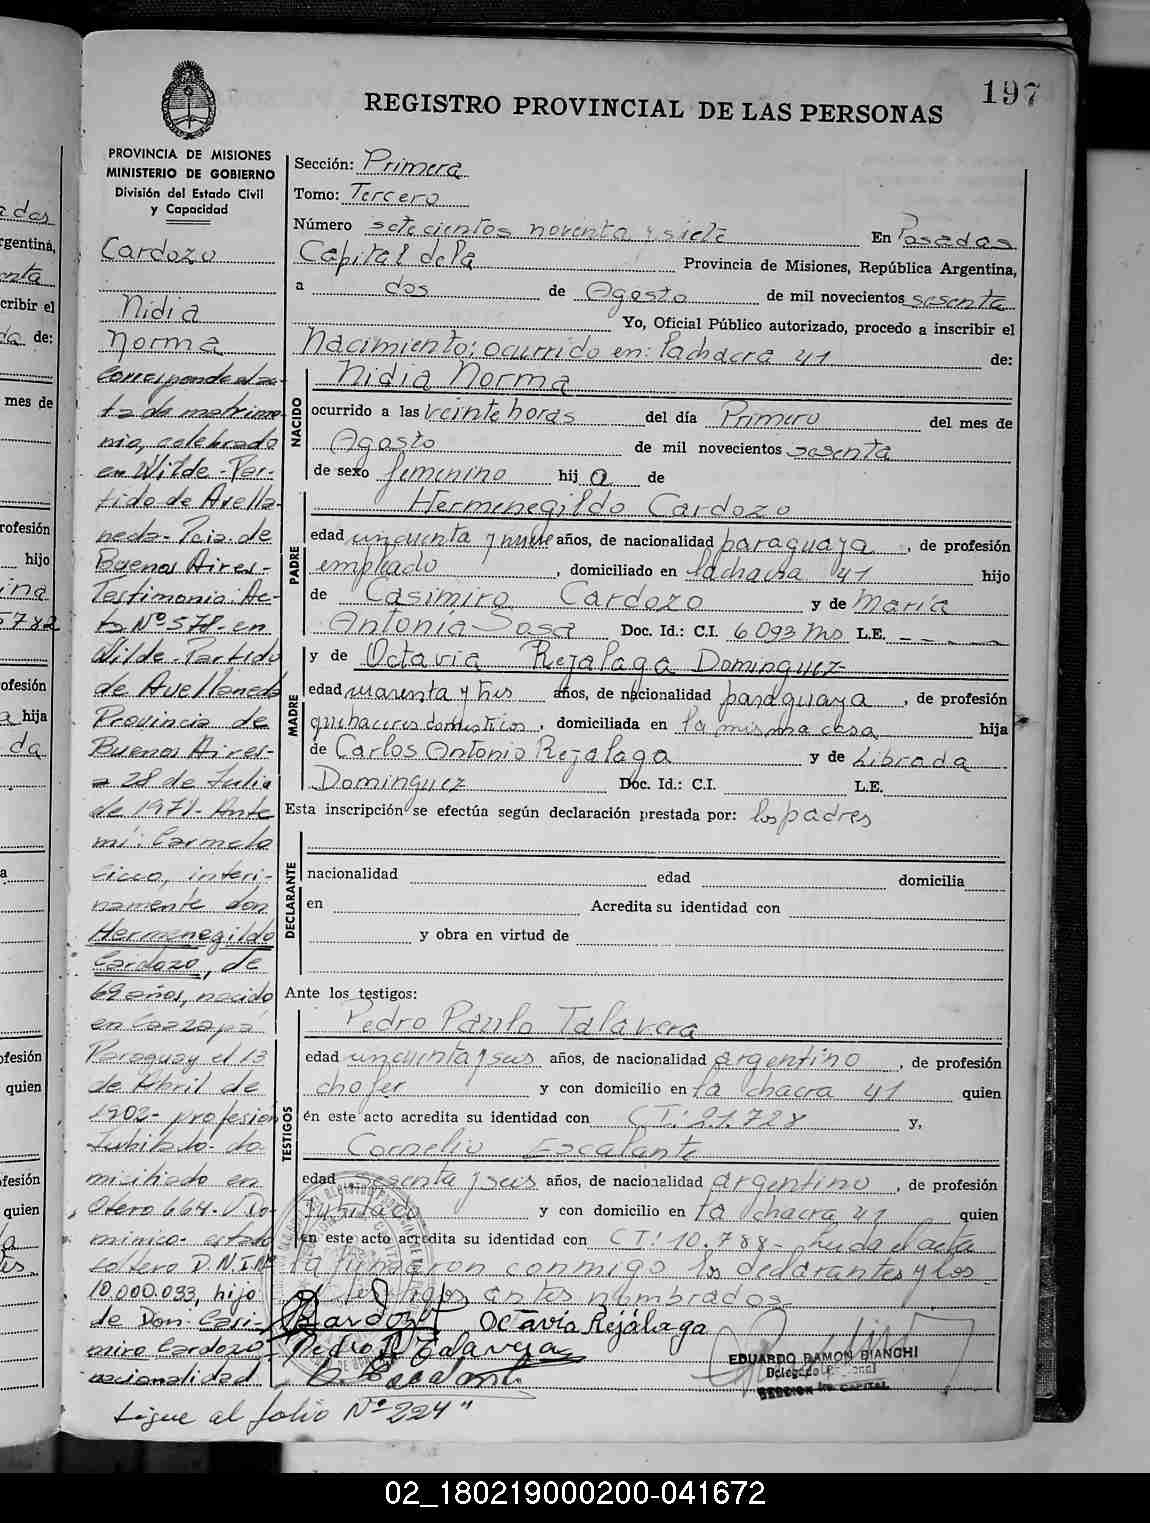 197
REGISTRO PROVINCIAL DE LAS PERSONAS
PROVINCIA DE MISIONES
MINISTERIO DE GOBIERNO
División del Estado Civil
y Capacidad
Cardozo
Nidia
Norma
Corresponde al ac-
ta de matrimo-
nio, celebrado
en Wilde-Par-
tido de Avella-
neda-Pcia. de
Buenos Aires-
Testimonio: Ac-
ta Nº 578-en
Wilde-Partido
de Avellaneda
Provincia de
Buenos Aires-
a 28 de Julio
de 1971-Ante
mí: Carmelo
interi-
namente don
Hermenegildo
Cardozo, de
69 años, nacido
en Caazapá
Paraguay el 13
de Abril de
1902- profesión
Jubilado- do-
miciliado en
Otero 664-Do-
minico- estado
soltero D.N.I. Nº
10.000.033, hijo
de Don Casi-
miro Cardozo-
nacionalidad
Sigue al folio Nº 224"
Sección: Primera
Tomo: Tercero
Número setecientos noventa y siete En Posadas
Capital de la Provincia de Misiones, República Argentina,
a dos de Agosto de mil novecientos sesenta
Yo, Oficial Público autorizado, procedo a inscribir el
Nacimiento: ocurrido en: la chacra 41 de:
NACIDO
Nidia Norma
ocurrido a las veinte horas del día Primero del mes de
Agosto de mil novecientos sesenta
de sexo femenino hij a de
PADRE
Hermenegildo Cardozo
edad cincuenta y nueve años, de nacionalidad paraguaya, de profesión
empleado, domiciliado en la chacra 41 hijo
de Casimiro Cardozo y de María
Antonia Sosa Doc. Id.: C.I. 6093 Ms. L.E. - - - -
y de Octavia Rejalaga Dominguez
MADRE
edad cuarenta y tres años, de nacionalidad paraguaya, de profesión
quehaceres domesticos, domiciliada en la misma casa hija
de Carlos Antonio Rejalaga y de Librada
Dominguez Doc. Id.: C.I. L.E.
Esta inscripción se efectúa según declaración prestada por: los padres
DECLARANTE
nacionalidad edad domicilia
en Acredita su identidad con
y obra en virtud de
Ante los testigos:
TESTIGOS
Pedro Paulo Talavera
edad cincuenta y seis años, de nacionalidad argentino, de profesión
chofer y con domicilio en la chacra 41 quien
en este acto acredita su identidad con CI: 21.728 y,
Cornelio Escalante
edad sesenta y seis años, de nacionalidad argentino, de profesión
Jubilado y con domicilio en la chacra 41 quien
en este acto acredita su identidad con CI: 10.788- Leida el acta
la firmaron conmigo los declarantes y los
testigos antes nombrados-
Cardozo Octavia Rejálaga
Pedro P. Talavera
C. Escalante
EDUARDO RAMON BIANCHI
SECCION 1ra CAPITAL
adas
rgentina,
enta
cribir el
da de:
mes de
rofesión
hijo
ina
5782
ofesión
a hija
da
a
ofesión
quien
fesión
quien
02_180219000200-041672